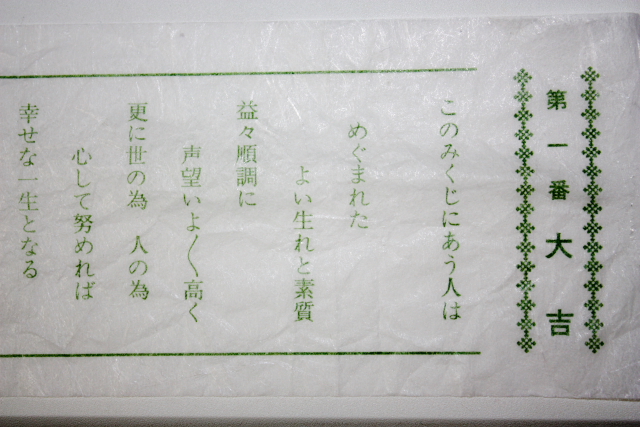 第一番大吉
このみくじにあう人は
めぐまれた
よい生れと素質
益々順調に
声望いよ〳〵高く
更に世の為　人の為
心して努めれば
幸せな一生となる